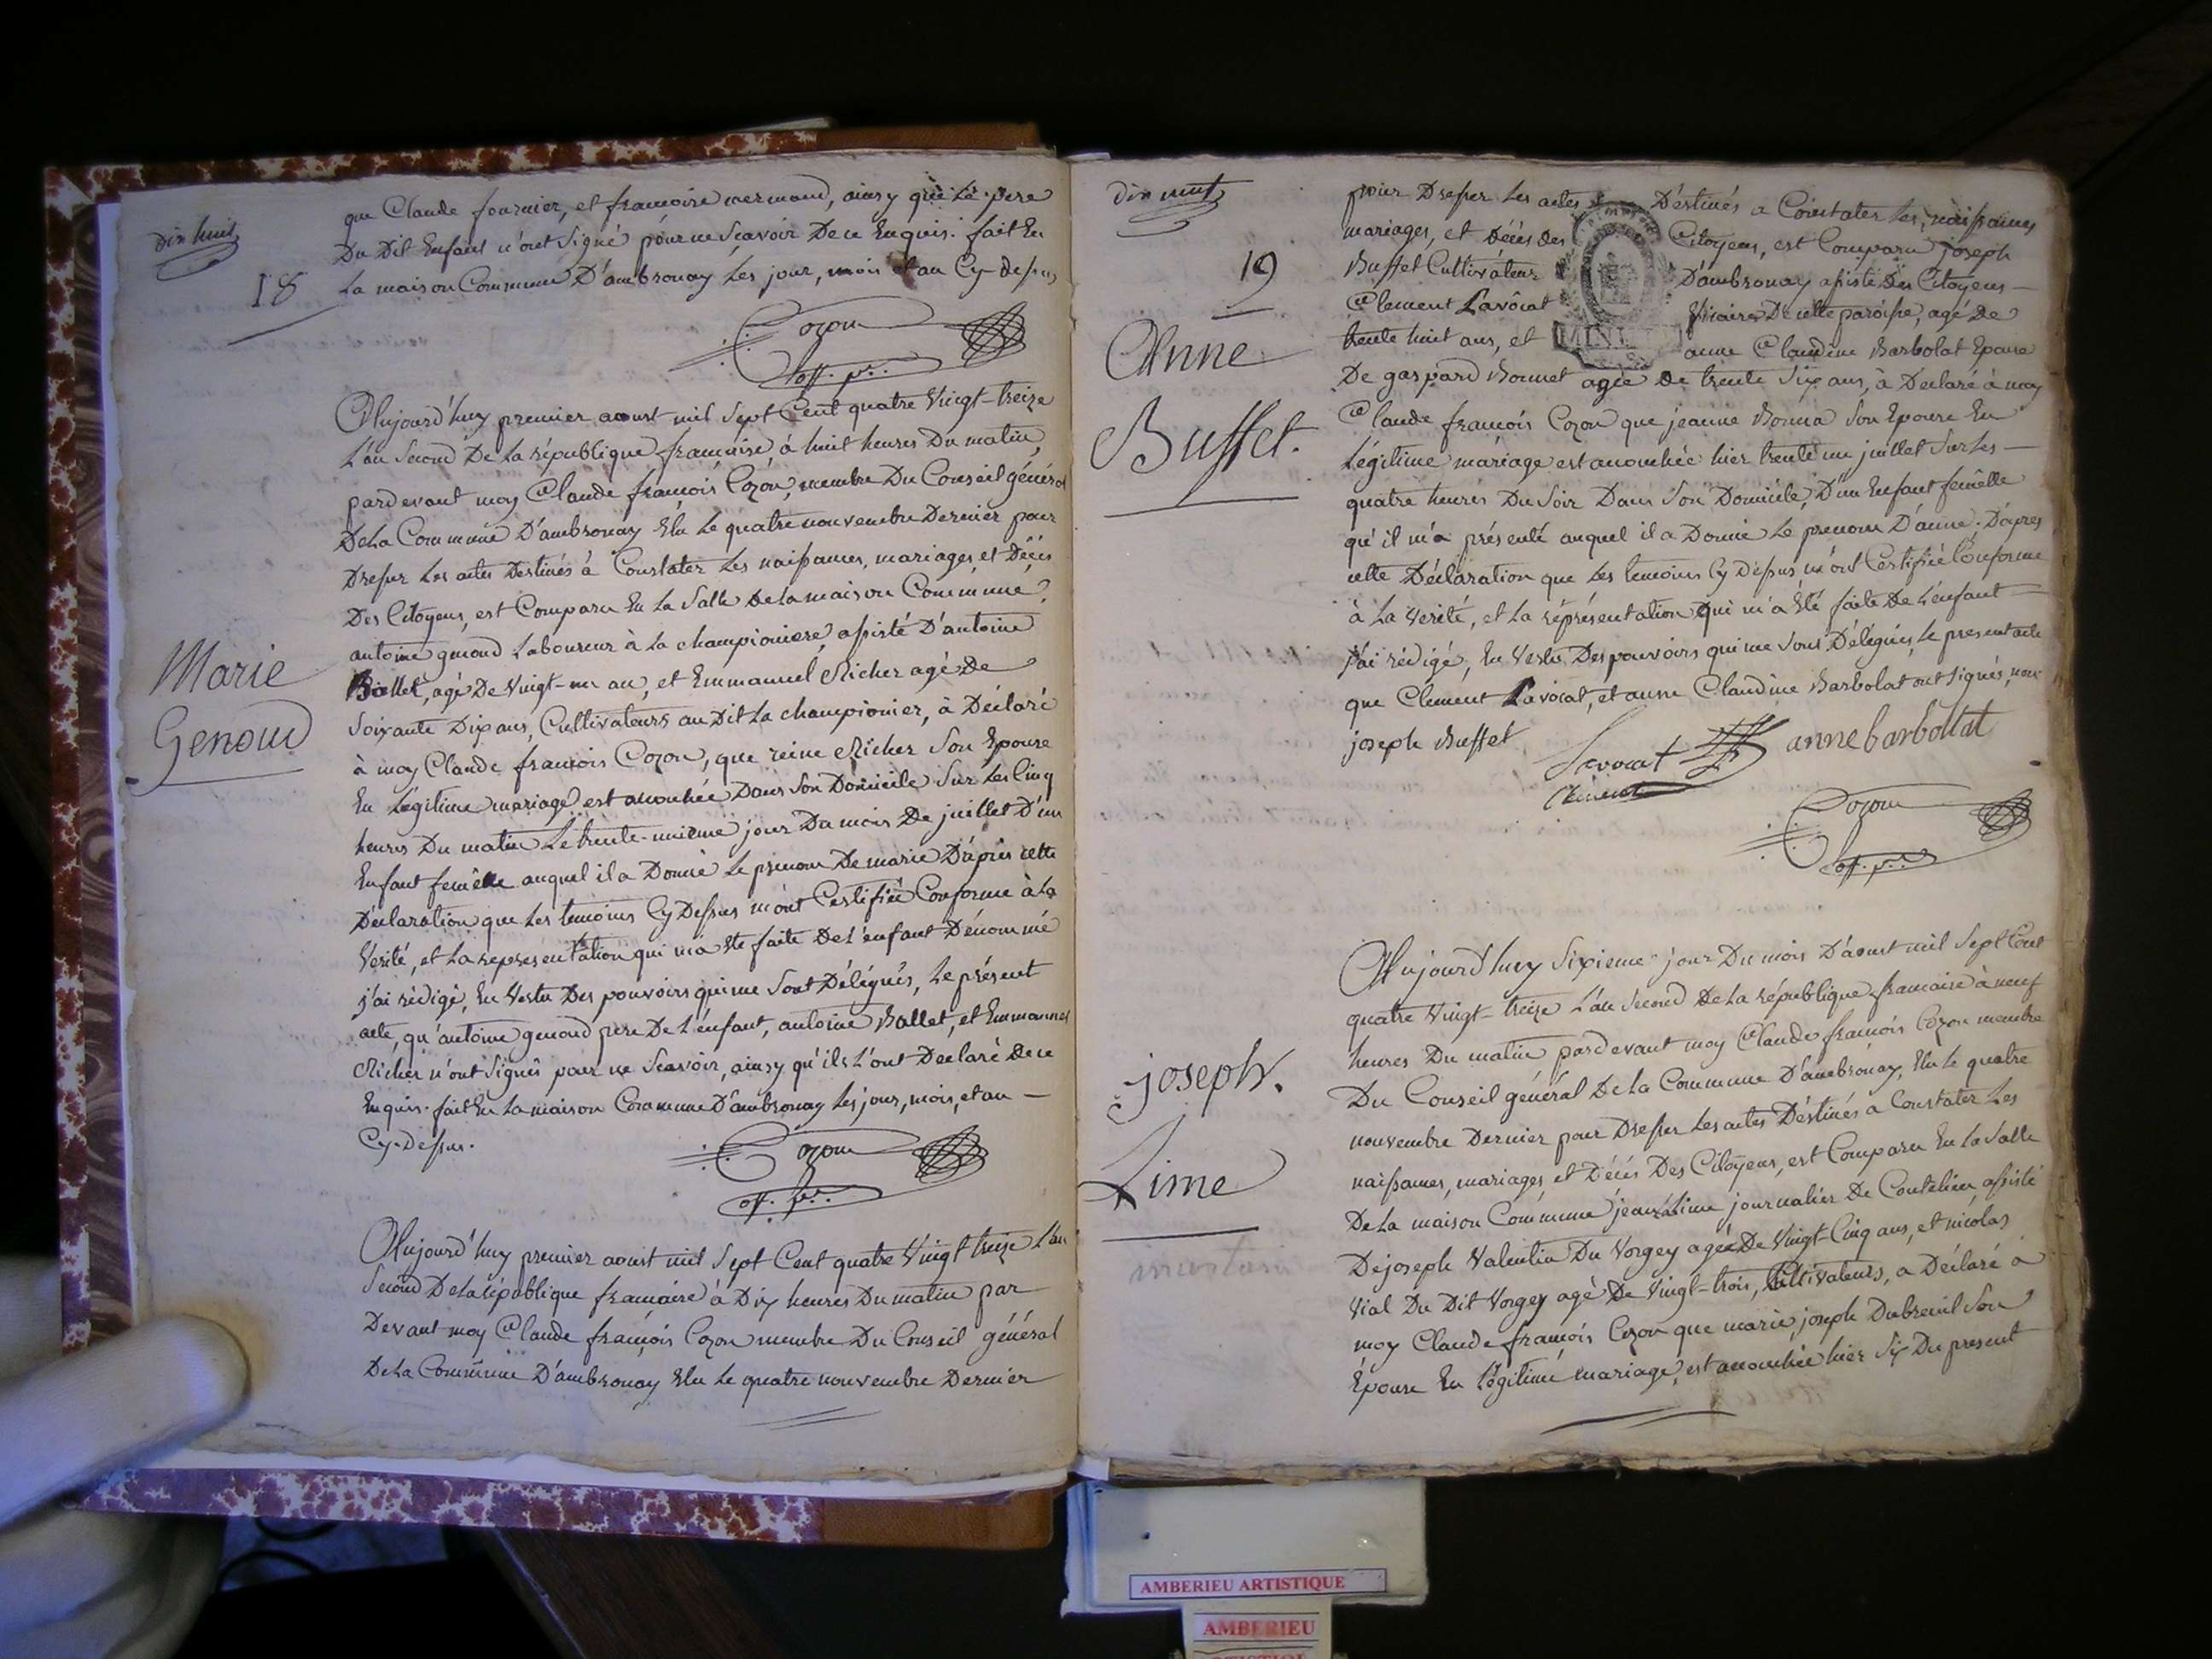 dix huit
18
que Claude fournier, et francoise mermand, ainsy que le pere
Du Dit Enfant n'ont Signé pour ne Scavoir De ce Enquis. fait En
la maison Commune D'ambronay Les jour, mois et an Cy-dessus
Cozon
off. p.
Aujourd'huy premier aoust mil Sept Cent quatre Vingt-treize
L'an Second De La république française, à huit heures Du matin,
pardevant moy Claude françois Cozon, membre Du Conseil général
De La Commune D'ambronay Elu Le quatre nouvembre Dernier pour
Dresser Les actes Destinés à Constater Les naissances, mariages et Décés
Des Citoyens, est Comparu En La Salle De La maison Commune
antoine genoud Laboureur à La championiere, assisté D'antoine
Ballet, agé De Vingt-un an, et Emmanuel Richer agé De
Soixante Dix ans, Cultivateurs au Dit La championier, à Déclaré
à moy Claude francois Cozon, que reine Richer Son Epouse
En Légitime mariage est accouchée Dans Son Domicile Sur Les Cinq
heures Du matin Le trente-unieme jour Du mois De juillet D'un
Enfant femêlle auquel il a Donné Le prenom De marie D'après cette
Déclaration que Les temoins Cy Dessus m'ont Certifiée Conforme à La
Verité, et La representation qui m'a Eté faite De L'enfant Dénommé
j'ai rédigé, En Vertu Des pouvoirs qui me Sont Délégués, Le présent
acte, qu'antoine genoud pere De L'enfant, antoine Ballet, et Emmanuel
Richer n'ont Signés pour ne Scavoir, ainsy qu'ils L'ont Declaré De ce
Enquis. fait En La maison Commune D'ambronay Les jour, mois, et an
Cy-dessus.
Marie
Genoud
Cozon
off. p.
Aujourd'huy premier aoust mil Sept Cent quatre Vingt treize L'an
Second De La république francaise à Dix heures Du matin par
Devant moy Claude françois Cozon membre Du Conseil général
De La Commune D'ambronay Elu Le quatre nouvembre Dernier
dix neuf
19
pour Dresser Les actes Déstinés a Constater Les naissances
mariages, et Décés Des Citoyens, est Comparu joseph
Buffet Cultivateur D'ambronay assisté Des Citoyens
Clement Lavôcat Vicaire De cette paroisse, agé De
trente huit ans, et anne Claudine Barbolat Epouse
De gaspard Bonnet agée De trente Six ans, à Declaré à moy
Claude francois Cozon que jeanne Bonna Son Epouse En
Légitime mariage est accouchée hier trente un juillet Sur Les
quatre heures Du Soir Dans Son Domicile, D'un Enfant femêlle
qu'il m'a présenté auquel il a Donné Le prenom D'anne. D'apres
cette Déclaration que Les temoins Cy Dessus m'ont Certifiée Conforme
à La Verité, et La réprésentation qui m'a Eté faite De L'enfant
j'ai rédigé, En Vertu Des pouvoirs qui me Sont Délégués, Le present acte
que Clement Lavocat, et anne Claudine Barbolat ont Signés, non
joseph Buffet
Anne
Buffet.
Lavocat
Clément
anne barbollat
Cozon
off. p.
Aujourd'huy Sixieme jour Du mois D'aoust mil Sept Cent
quatre Vingt-treize L'an Second De La république francaise à neuf
heures Du matin pardevant moy Claude françois Cozon membre
Du Conseil général De La Commune D'ambronay, Elu Le quatre
nouvembre Dernier pour Dresser Les actes Déstinés a Constater Les
naissances, mariages, et Décés Des Citoyens, est Comparu En La Salle
De La maison Commune jean Lime journalier De Coutelieu, assisté
De joseph Valentin Du Vorgey agée De Vingt-Cinq ans, et nicolas
Vial Du Dit Vorgey agé De Vingt-trois, Cultivateurs, a Déclaré à
moy Claude françois Cozon que marie joseph Dubreuil Son
Épouse En Légitime mariage, est accouchée hier Six Du present
joseph.
Lime
AMBERIEU ARTISTIQUE
AMBERIEU